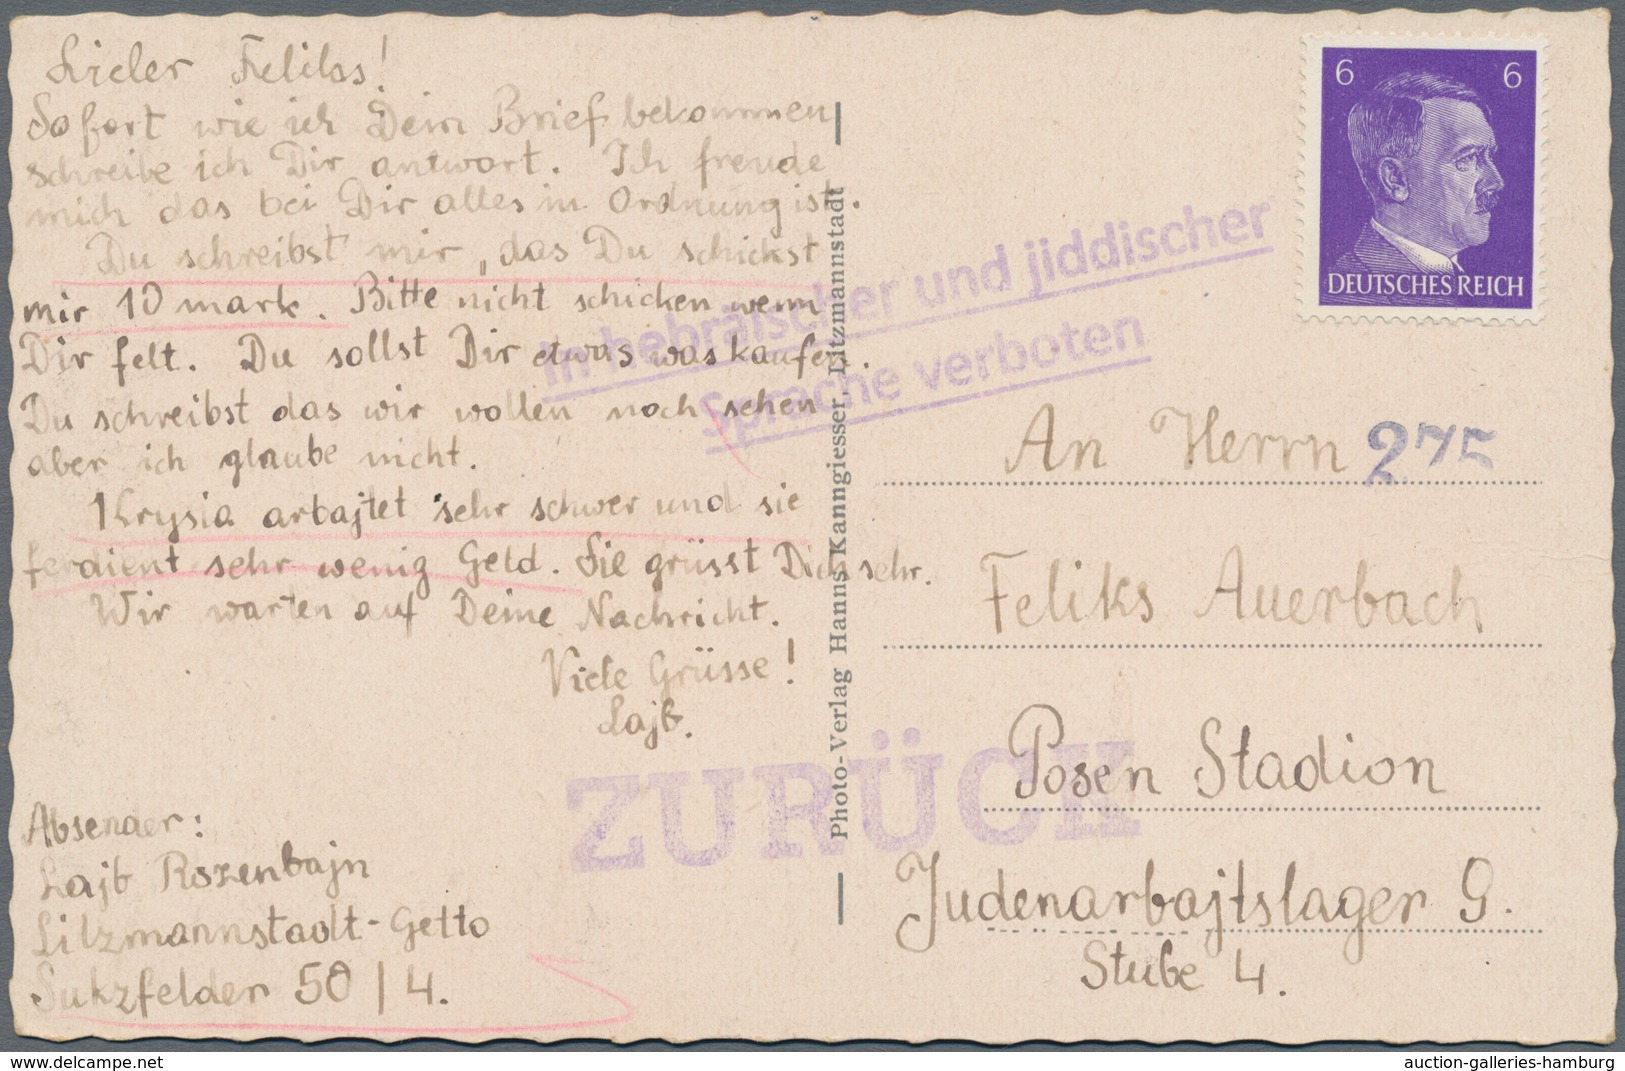 Lieber Feliks!
Sofort wie ich Dein Brief bekommen
schreibe ich Dir antwort. Ich freude
mich das bei Dir alles in Ordnung ist.
Du schreibst mir, das Du schickst
mir 10 mark. Bitte nicht schicken wenn
Dir felt. Du sollst Dir etwas was kaufen.
Du schreibst das wir wollen noch sehen
aber ich glaube nicht.
Krysia arbajtet sehr schwer und sie
ferdient sehr wenig Geld. Sie grüsst Dich sehr.
Wir warten auf Deine Nachricht.
Viele Grüsse!
Lajb.
Absender:
Lajb Rozenbajn
Litzmannstadt-Getto
Sulzfelder 50/4.
Photo-Verlag Hanns Kanngiesser, Litzmannstadt
In hebräischer und jiddischer
Sprache verboten
ZURÜCK
6 6
DEUTSCHES REICH
An Herrn 275
Feliks Auerbach
Posen Stadion
Judenarbajtslager G.
Stube 4.
www.delcampe.net
auction-galleries-hamburg